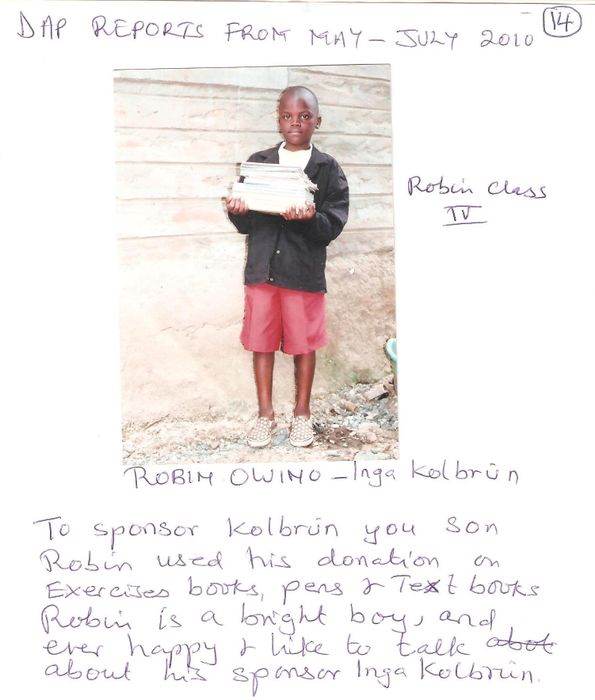 DAP REPORTS FROM MAY - JULY 2010 14
Robin class
IV
ROBIN OWINO - Inga Kolbrún
To sponsor Kolbrún you son
Robin used his donation on
Exercises books, pens & Text books
Robin is a bright boy, and
ever happy & like to talk abot
about his sponsor Inga Kolbrún.